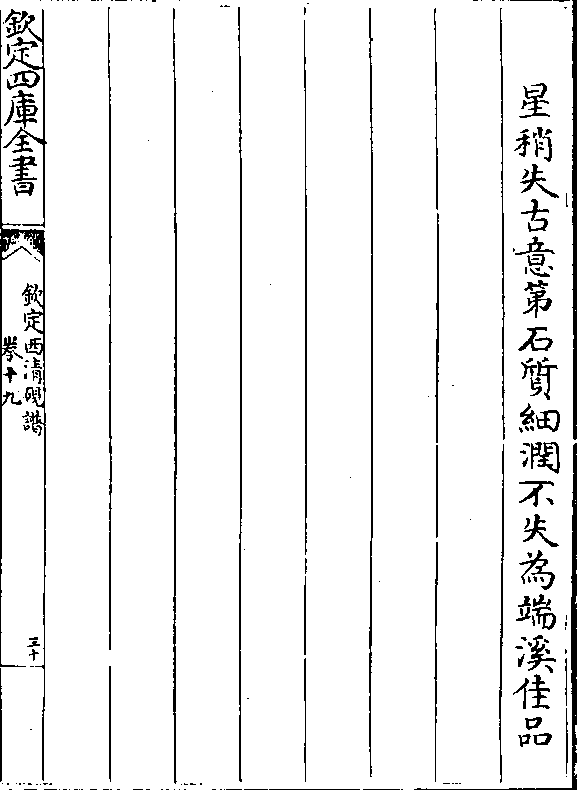 星稍失古意第石質細潤不失為端溪佳品
欽定四庫全書
欽定西清硯譜
卷十九
三十